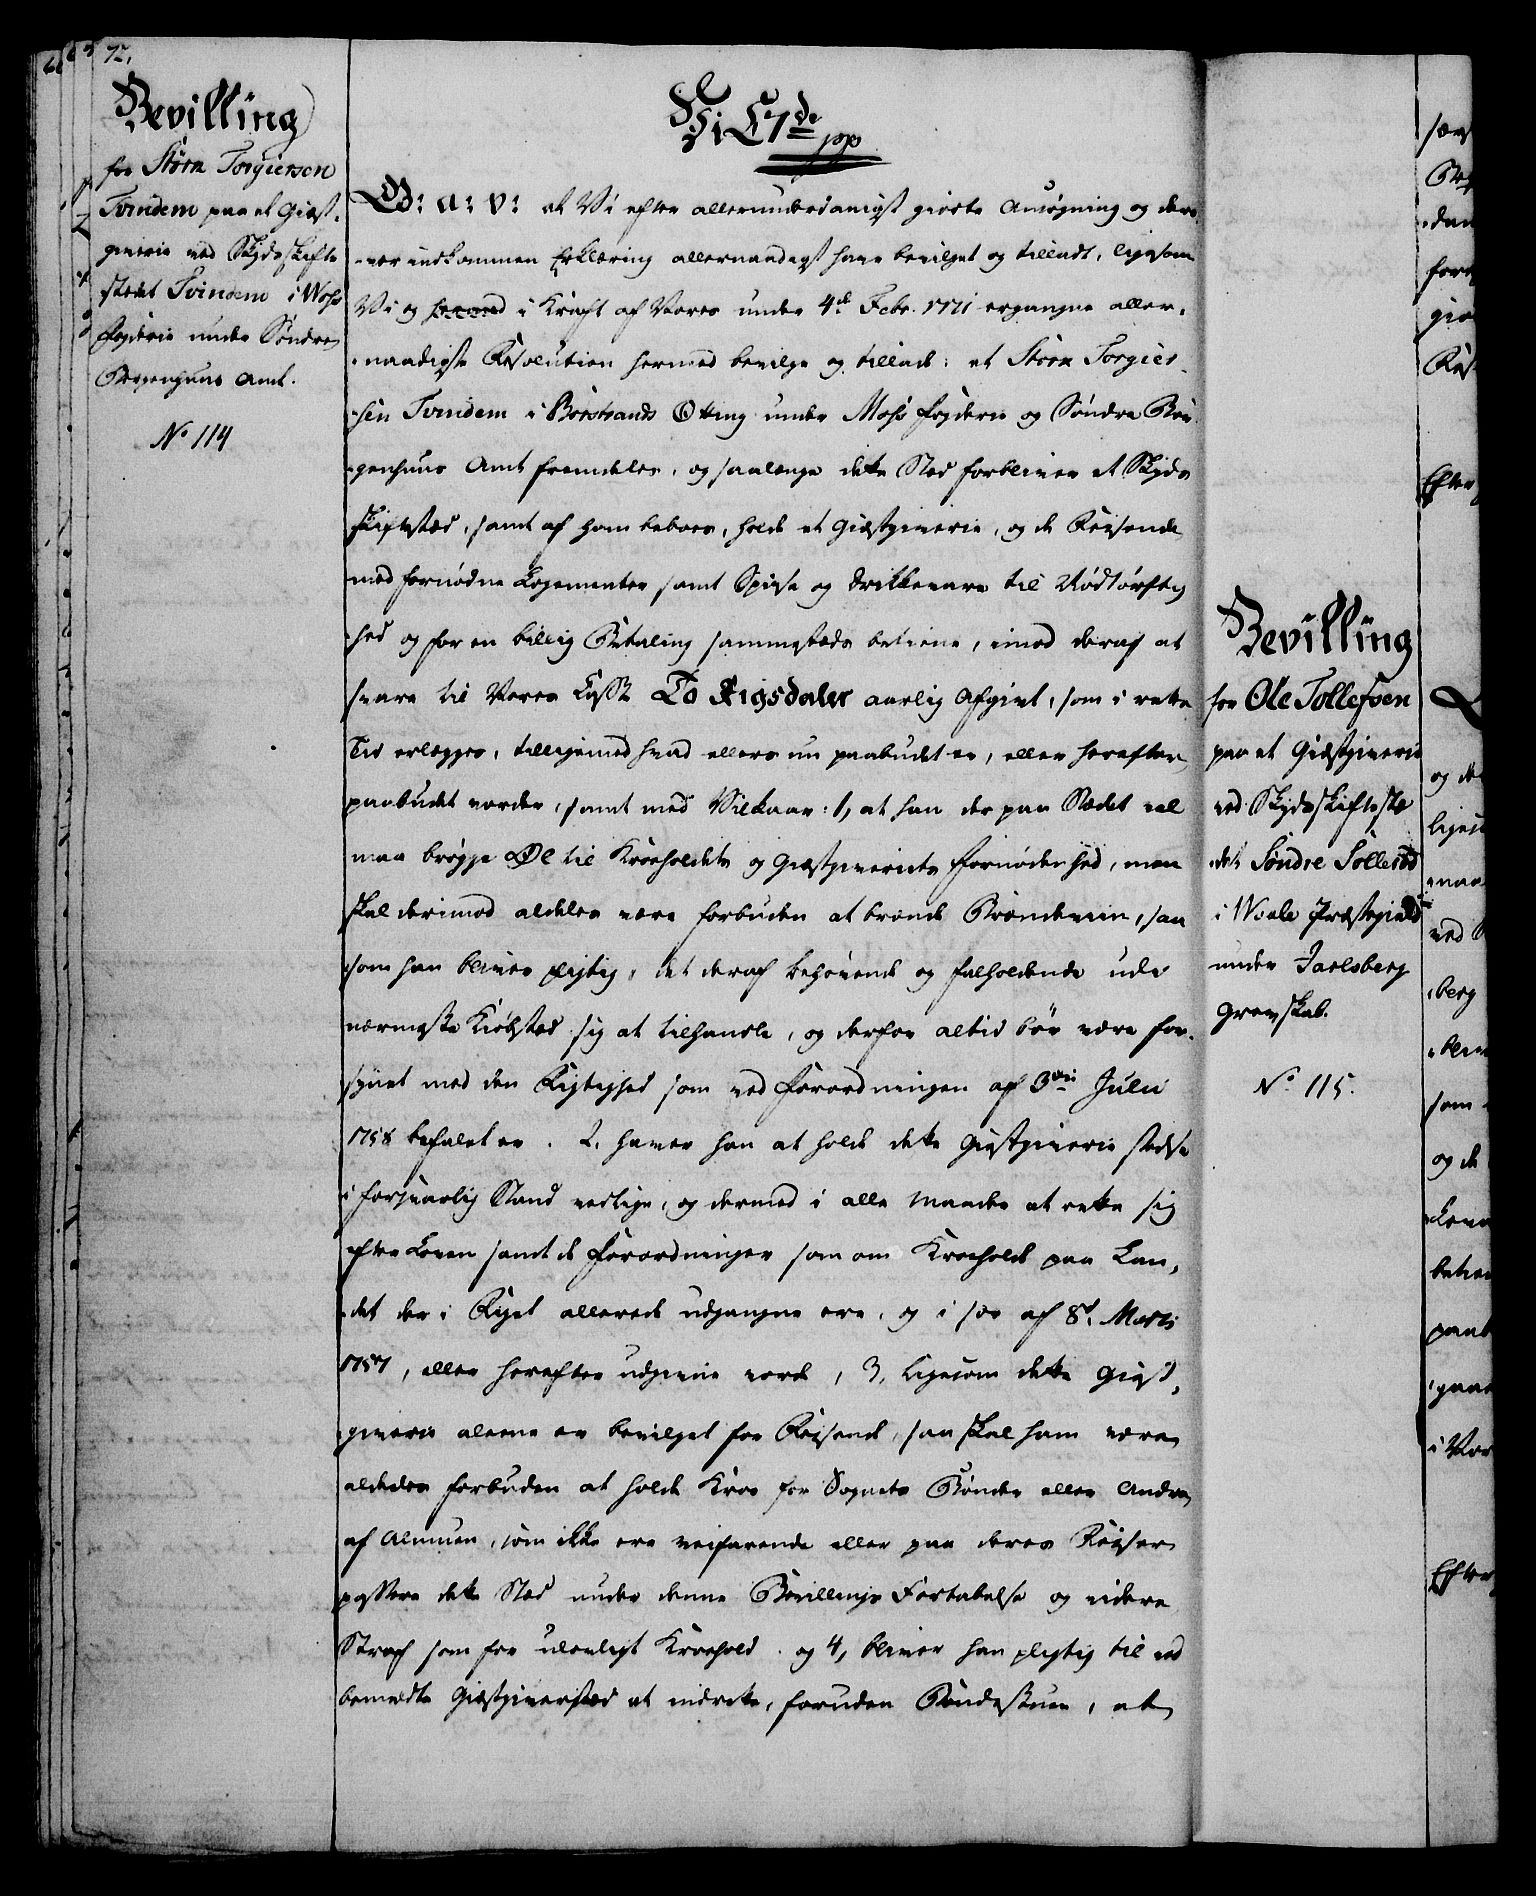 72,
Bevilling
for Störn Torgiersen
Tvindem paa et Giæst-
giverie ved Skydsskifte
stædet Tvindem i Woss
Fogderie under Söndre
Bergenhuus Amt.
No 114
Vi C7de
pp
G: A: V: at Vi efter allerunderdanigst giorte Ansøgning og der-
-over indkommen Erklæring allernaadigst have bevilget og tilladt, ligesom
Vi og hermed i Kraft af Vores under 4de Febr. 1771 ergangne aller-
-naadigste Resolution hermed bevilge og tillade: at Störn Torgier-
-sen Tvindem i Otting under Woss Fogderie og Söndre Ber-
-genhuus Amt fremdeles, og saalænge dette Sted forbliver et Skyds
skiftestæd, samt af ham beboes, holde et Giæstgiverie, og de Reisende
med fornødne Logementer samt Spise og Drikkevare til Nødtørftig-
-hed og for en billig Betaling sammestæds betiene, imod deraf at
svare til Vores Casse To Rigsdaler aarlig Afgivt, som i rette
Tid erlægges, tilligemed hvad ellers nu paabudet er, eller herefter
paabudet vorder, samt med Vilkaar: 1, at han der paa Stædet vel
maa brögge Øl til Kroeholdets og Giæstgiveriets Fornødenhed, men
skal derimod aldeles være forbuden at brænde Brændeviin, saa
som han bliver pligtig, det deraf behøvende og falholdende udi
nærmeste Kiöbstæd sig at tilhandle, og derfor altid bör være for-
synet med den Rigtighed som ved Forordningen af 3die Julii
1758 befalet er. 2, haver han at holde dette Giæstgiverie stedse
i forsvarlig Stand vedlige, og dermed i alle Maader at rette sig
efter Loven samt de Forordninger som om Kroehold paa Lan-
-det der i Riget allerede udgangne ere, og i sær af 8de Martii
1757, eller herefter udgivne vorde, 3, ligesom dette Giæst-
giverie alene er bevilget for Reisende, saa skal ham være
aldeles forbuden at holde Kroe for Sognets Bønder eller Andre
af Almuen, som ikke ere veifarende eller paa deres Reiser
passere dette Sted under denne Bevillings Fortabelse og videre
Straf som for ulovligt Kroehold. og 4, bliver han pligtig til ved
bemeldte Giæstgiverstæd at indrette, foruden Bøndestuen, et
Bevilling
for Ole Tollefsen
paa et Giæstgiverie
ved Skydsskiftestæ-
-det Söndre Sollerød
i Wiole Præstegield
under Jarlsberg
Grevskab.
No 115.
og de
Efter
som
og de
Efter